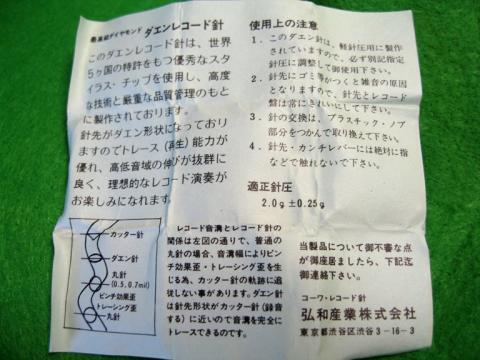 最高級ダイヤモンド ダエンレコード針
このダエンレコード針は、世界
5ヶ国の特許をもつ優秀なスタ
イラス・チップを使用し、高度
な技術と厳重な品質管理のもと
に製作されております。
針先がダエン形状になっており
ますのでトレース(再生)能力が
優れ、高低音域の伸びが抜群に
良く、理想的なレコード演奏が
お楽しみになれます。
カッター針
ダエン針
丸針
(0.5,0.7mil)
ピンチ効果歪
トレーシング歪
丸針
レコード音溝とレコード針の
関係は左図の通りで、普通の
丸針の場合、音溝幅によりピン
チ効果歪・トレーシング歪を生
じる為、カッター針の軌跡に追
従しない事があります。ダエン針
は針先形状がカッター針(録音
する)に近いので音溝を完全に
トレースできるのです。
使用上の注意
1.このダエン針は、軽針圧用に製作
されていますので、必ず別記指定
針圧に調整して御使用下さい。
2.針先にゴミ等がつくと雑音の原因
となりますので、針先とレコード
盤は常にきれいにして下さい。
3.針の交換は、プラスチック・ノブ
部分をつかんで取り換えて下さい。
4.針先・カンチレバーには絶対に指
などで触れないで下さい。
適正針圧
2.0g±0.25g
当製品について御不審な点
が御座居ましたら、下記迄
御連絡下さい。
コーワ・レコード針
弘和産業株式会社
東京都渋谷区渋谷3-16-3